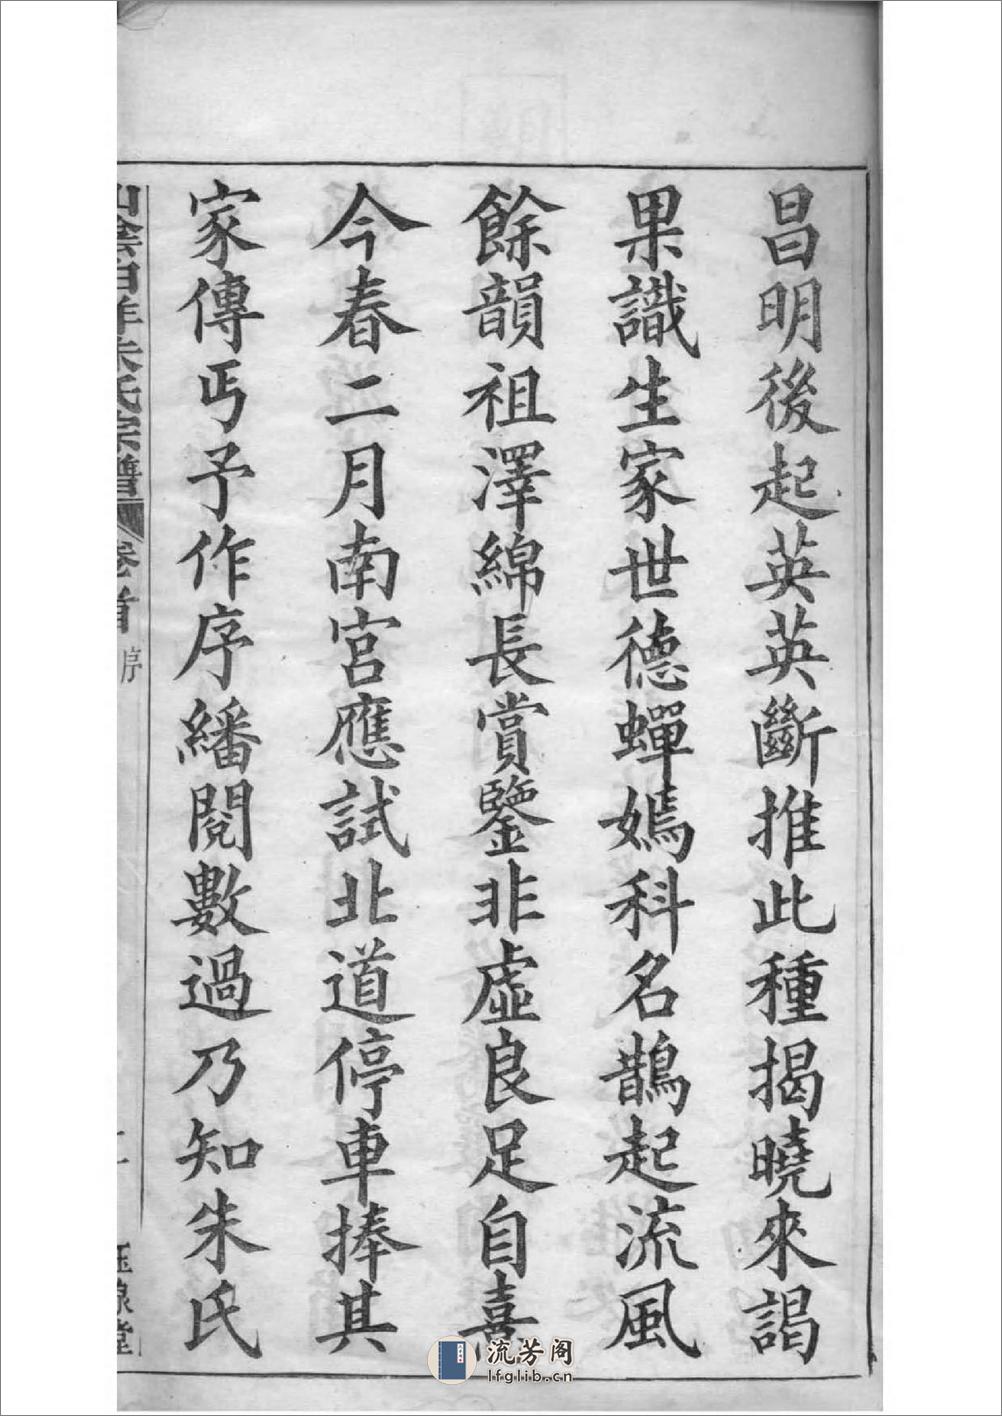 昌明後起英英斷推此種揭曉來謁
果識生家世德蟬嫣科名鵲起流風
餘韻祖澤綿長賞鑒非虛良足自喜
今春二月南宮應試北道停車捧其
家傳丐予作序繙閱數過乃知朱氏
山陰白洋朱氏宗譜 卷首 序
玉泉堂
流芳阁
lfglib.cn